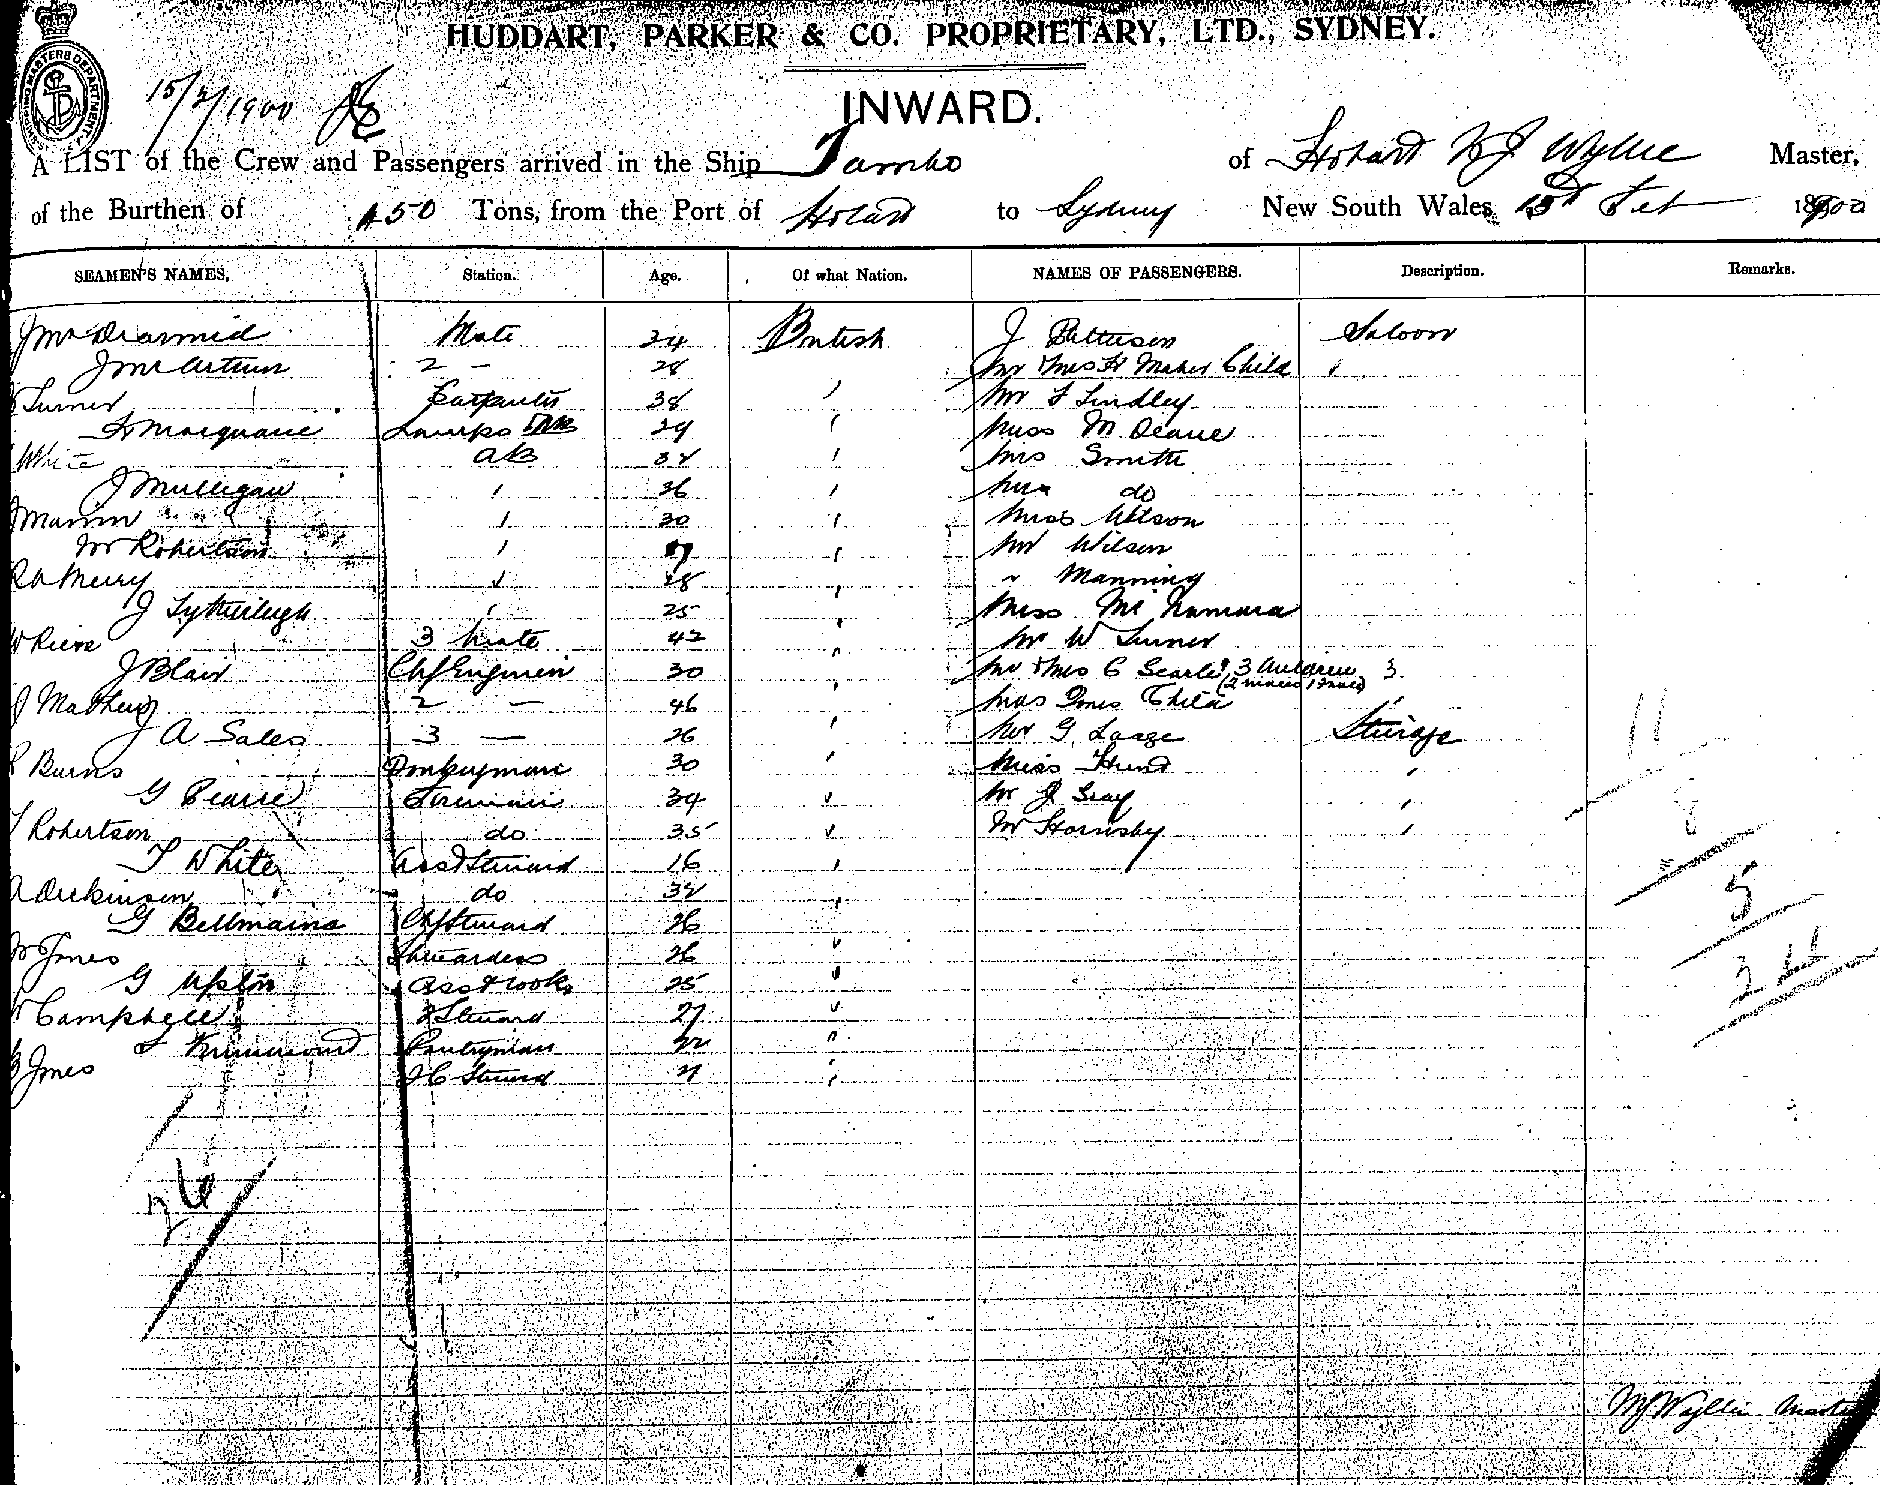 HUDDART, PARKER & CO. PROPRIETARY, LTD., SYDNEY.
15/2/1900
INWARD.
A LIST of the Crew and Passengers arrived in the Ship Tambo of Hobart W J Wyllie Master,
of the Burthen of 450 Tons, from the Port of Hobart to Sydney New South Wales 15th Feb 1900
SEAMEN'S NAMES, Station. Age. Of what Nation. NAMES OF PASSENGERS. Description. Remarks.
J McDiarmid Mate 34 British J Patterson Saloon
J McArthur 2 - 28 Mr & Mrs H Maher Child
Turner Carpenter 38 Mr F Lindley
Macquarie Lamps 29 Miss M Deane
White AB 32 Mrs Smith
J Mulligan 36 do
J Mann 30 Miss Wilson
W Robertson Mr Wilson
R A Merry 28 " Manning
J Sytherleigh 25 Miss McNamara
W Riere 3 Mate 42 Mr W Turner
J Blair Chf Engineer 30 Mr & Mrs C Searle & 3 Children 3
J Mathews 2 - 46 Mrs Jones Child
J A Sales 3 - 26 Mr G Large Steerage
Burns Donkeyman 30 Miss Hund
G Pearce Fireman 34 Mr J Gray
T Robertson do 35 Mr Hornsby
T White Asst Steward 16
A Dickinson do 32
G Bellmaine Chf Steward 26
Jones Stewardess 26
G Upton Asst Cook 25
Campbell 2 Steward 27
Pantryman 22
Jones F C Steward 21
26
11
8
5
24
W J Wyllie Master